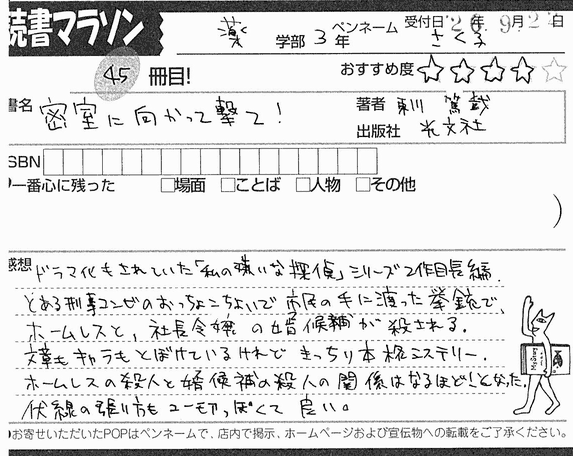 読書マラソン
薬 学部 3 年 ペンネーム さくら 受付日 '20年 9月 2 日
45 冊目! おすすめ度 ☆☆☆☆☆
書名 密室に向かって撃て! 著者 東川 篤哉
出版社 光文社
ISBN
一番心に残った □場面 □ことば □人物 □その他
)
感想 ドラマ化もされていた「私の嫌いな探偵」シリーズ2作目長編.
とある刑事コンビのおっちょこちょいで市民の手に渡った拳銃で、
ホームレスと、社長令嬢の婿候補が殺される.
文章もキャラもとぼけているけれど きっちり本格ミステリー.
ホームレスの殺人と婿候補の殺人の関係はなるほど!となった.
伏線の張り方もユーモアっぽくて良い。
お寄せいただいたPOPはペンネームで、店内で掲示、ホームページおよび宣伝物への転載をご了承ください。